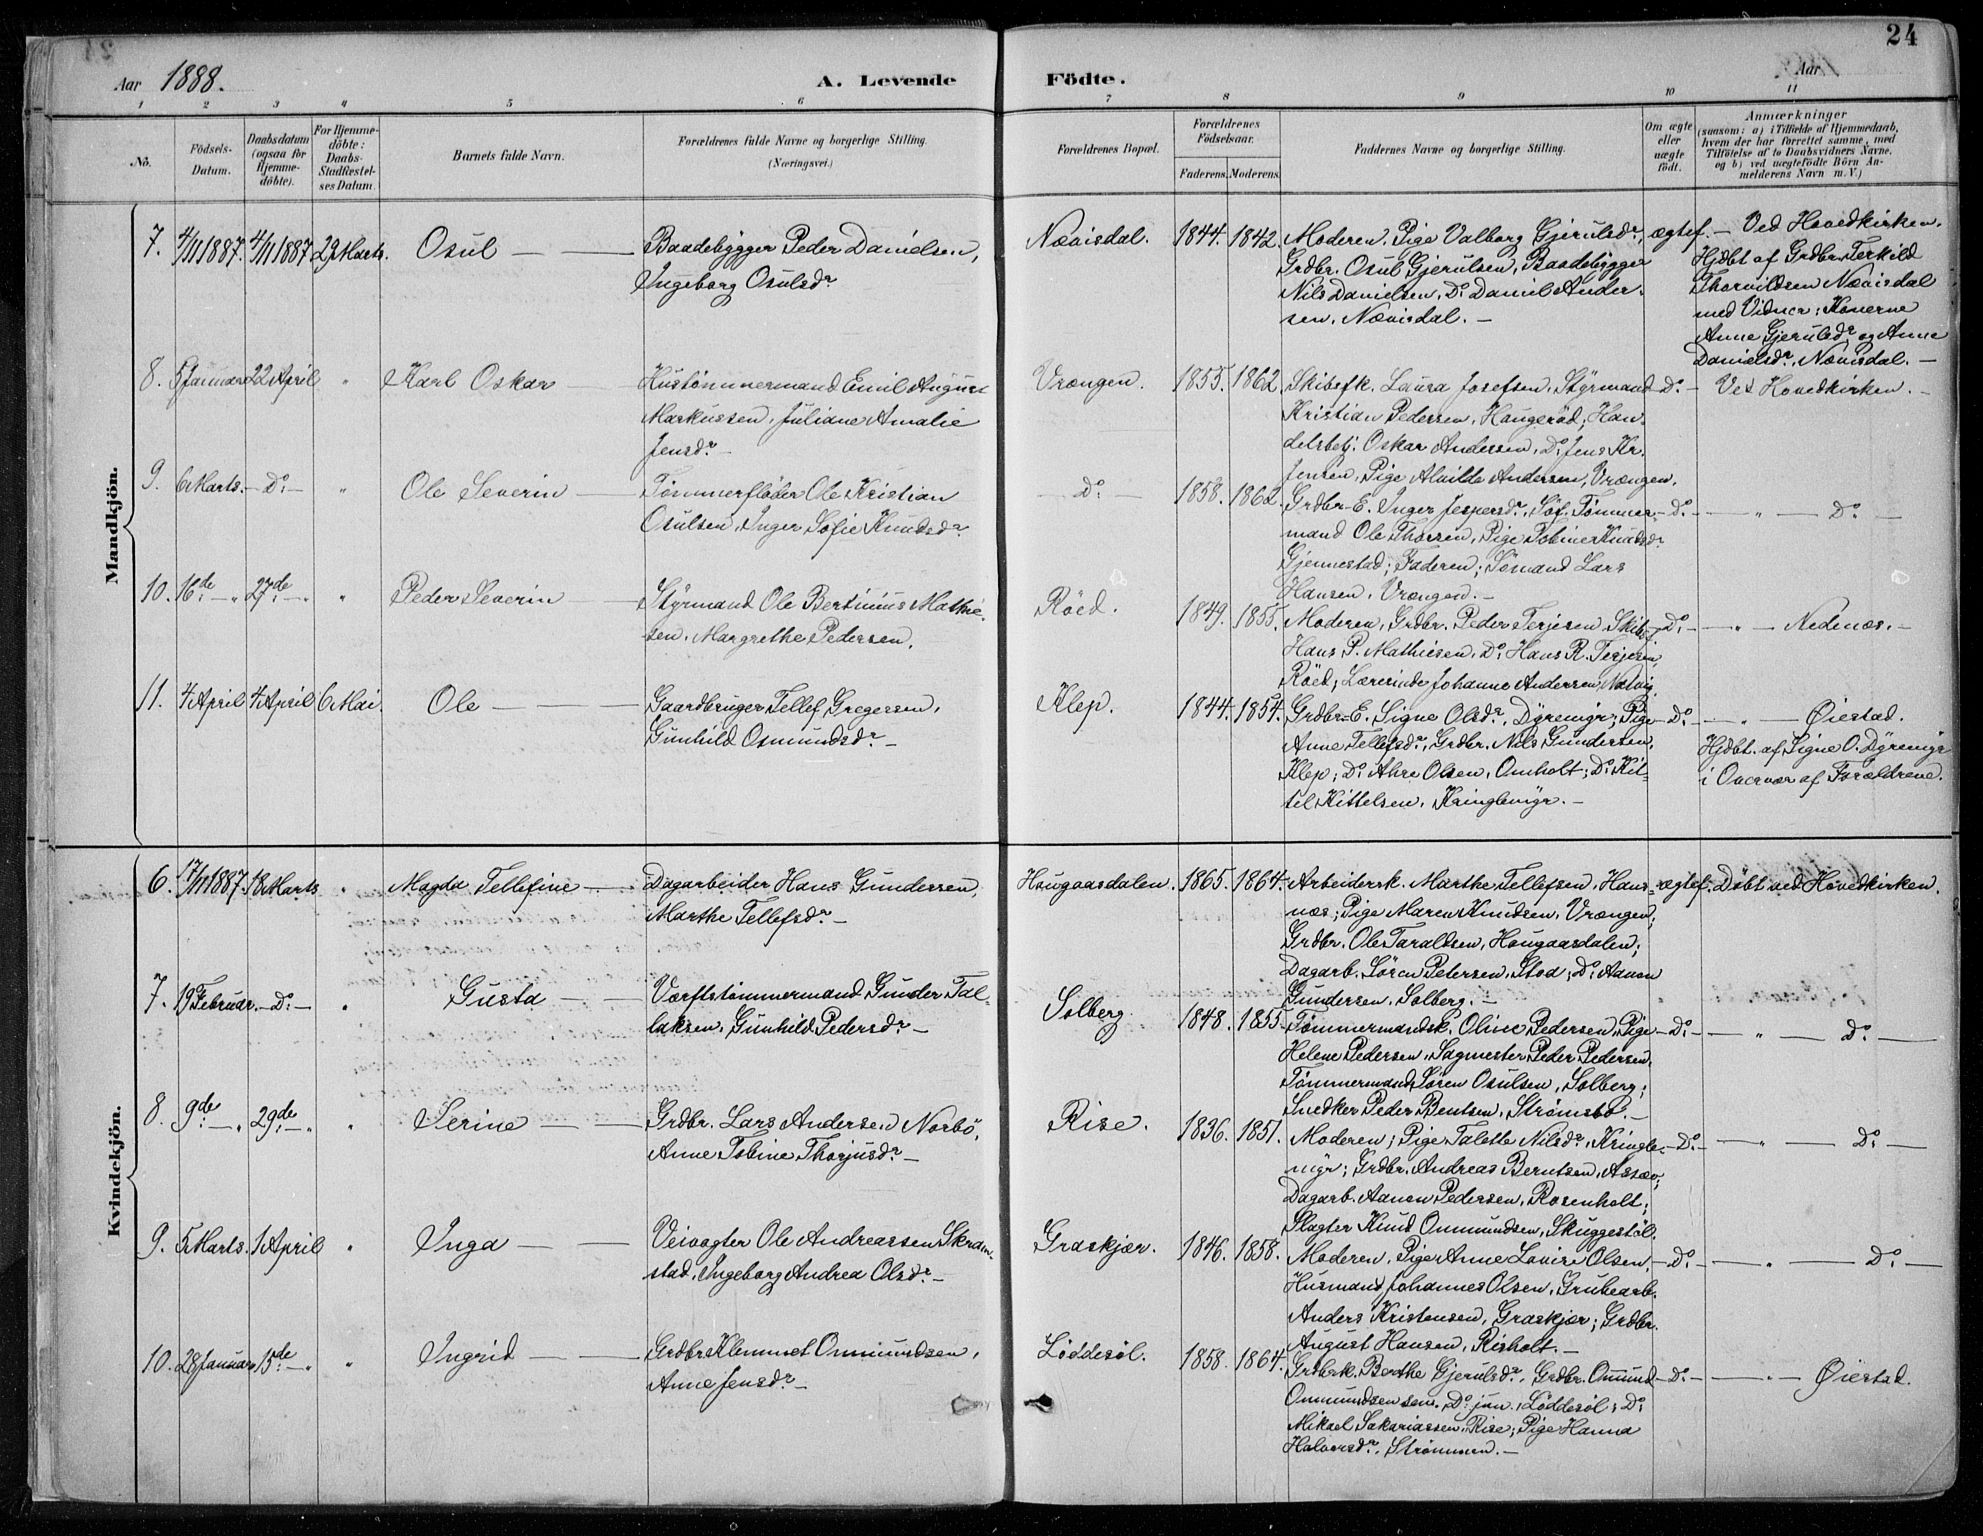 24
Aar 1888.
A. Levende
Födte.
Aar
1
2
3
4
5
6
7
8
9
10
11
No.
Födsels-
Datum.
Daabsdatum
(ogsaa for
Hjemme-
döbte).
For Hjemme-
döbte:
Daabs-
Stadfæstel-
ses Datum.
Barnets fulde Navn.
Forældrenes fulde Navne og borgerlige Stilling.
(Næringsvei.)
Forældrenes Bopæl.
Forældrenes
Födselsaar.
Faderens.
Moderens.
Faddernes Navne og borgerlige Stilling.
Om ægte
eller
uægte
födt.
Anmærkninger
(saasom: a) i Tilfælde af Hjemmedaab,
hvem der har forrettet samme, med
Tilföielse af to Daabsvidners Navne,
og b) ved uægtefödte Börn An-
melderens Navn m. V.)
Mandkjön.
7. 4/11 1887. 4/11 1887. 29 Marts. Osul —
Baadebygger Peder Danielsen,
Ingeborg Osulsdr.
Nævisdal. 1844. 1842.
Moderen. Pige Valborg Gjerulsdr.,
Grdbr. Osul Gjerulsen, Baadebygger
Nils Danielsen, Do. Daniel Ander-
sen, Nævisdal. —
ægtef. — Ved Hovedkirken.
Hjdbt af Grdbr. Terkild
Thorvildsen Nævisdal
med Vidner: Konerne
Anne Gjerulsdr. og Anne
Danielsdr., Nævisdal. —
8. 5 Januar 22 April " Karl Oskar —
Hustømmermand Emil August
Markussen, Juliane Amalie
Jensdr. —
Vrængen. 1855. 1862.
Skibsfk. Laura Josefsen, Styrmand
Kristian Pedersen, Haugeröd; Han-
delsbetj. Oskar Andersen, Do. Jens Kr.
Jensen, Pige Alvilde Andersen, Vrængen.
— Do. — Ved Hovedkirken. —
9. 6 Marts. — Do. — " Ole Severin —
Tømmerfløder Ole Kristian
Osulsen, Inger Sofie Knudsdr.
— Do. — 1858. 1862.
Grdbr. E. Inger Jespersdr., Søf. Tømmer-
mand Ole Thorsen, Pige Tobine Knudsdr.
Gjennestad; Faderen; Sømand Lars
Hansen, Vrængen. —
— Do. — " — Do. —
10. 16de — " 27de — " " Peder Severin —
Styrmand Ole Bertinius Mathie-
sen, Margrethe Pedersen.
Röed. 1849. 1855.
Moderen, Grdbr. Peder Terjesen, Skibsf.
Hans P. Mathiesen, Do. Hans R. Terjesen,
Röed; Lærerinde Johanne Andersen, Natvig.
— Do. — " — Nedenæs. —
11. 4 April 4 April 6 Mai Ole —
Gaardbruger Tellef Gregersen,
Gunhild Osmundsdr. —
Klep. 1844. 1854.
Grdbr. E. Signe Olsdr., Dyremyr; Pige
Anne Tellefsdr., Grdbr. Nils Gundersen,
Klep; Do. Ahre Olsen, Omholt; Do. Kit-
tel Kittelsen, Kringlemyr. —
— Do. — " — Øiestad.
Hjdbt. af Signe O. Dyremyr
i Overvær af Forældrene.
Kvindekjön.
6. 17/11 1887. 18 Marts " Magda Tellefine —
Dagarbeider Hans Gundersen,
Marthe Tellefsdr. —
Haugaasdalen. 1865. 1864.
Arbeidersk. Marthe Tellefsen, Hans-
næs; Pige Maren Knudsen, Vrængen;
Grdbr. Ole Taraldsen, Haugaasdalen;
Dagarb. Sören Petersen, Stod; Do. Aanon
Gundersen, Solberg. —
ægtef. Döbt ved Hovedkirken.
7. 19 Februar. — Do. — " Gusta —
Værftstömmermand Gunder Tal-
laksen, Gunhild Pedersdr. —
Solberg. 1848. 1855.
Tømmermandsk. Oline Pedersen, Pige
Helene Pedersen, Sagmester Peder Pedersen,
Tömmermand Sören Osulsen, Solberg;
Snedker Peder Bentsen, Strömsbö. —
— Do. — " — Do. —
8. 9de — " 29de — " " Serine —
Grdbr. Lars Andersen Norbö,
Anne Tobine Thorjusdr. —
Rise. 1836. 1851.
Moderen; Pige Talette Nilsdr., Kringle-
myr; Grdbr. Andreas Berntsen, Assæv;
Dagarb. Aanon Pedersen, Rosenholt;
Slagter Knud Ommundsen, Skuggestöl.
— Do. — " — Do. —
9. 5 Marts. 1 April " Inga —
Veivogter Ole Andreassen Skram-
stad, Ingeborg Andrea Olsdr. —
Graskjær. 1846. 1858.
Moderen, Pige Anne Lovise Olsen,
Husmand Johannes Olsen, Grubearb.
Anders Kristensen, Graskjær; Grdbr.
August Hansen, Risholt. —
— Do. — " — Do. —
10. 28 Januar 15de — " " Ingrid —
Grdbr. Klemmet Ommundsen,
Anne Jensdr. —
Löddesöl. 1858. 1864.
Grdbrk. Berthe Gjerulsdr., Grdbr. Ommund
Ommundsen sen., Do. jun., Löddesöl; Do.
Mikael Sakariassen, Rise; Pige Hanna
Halvorsdr., Strömmen. —
— Do. — " — Øiestad.